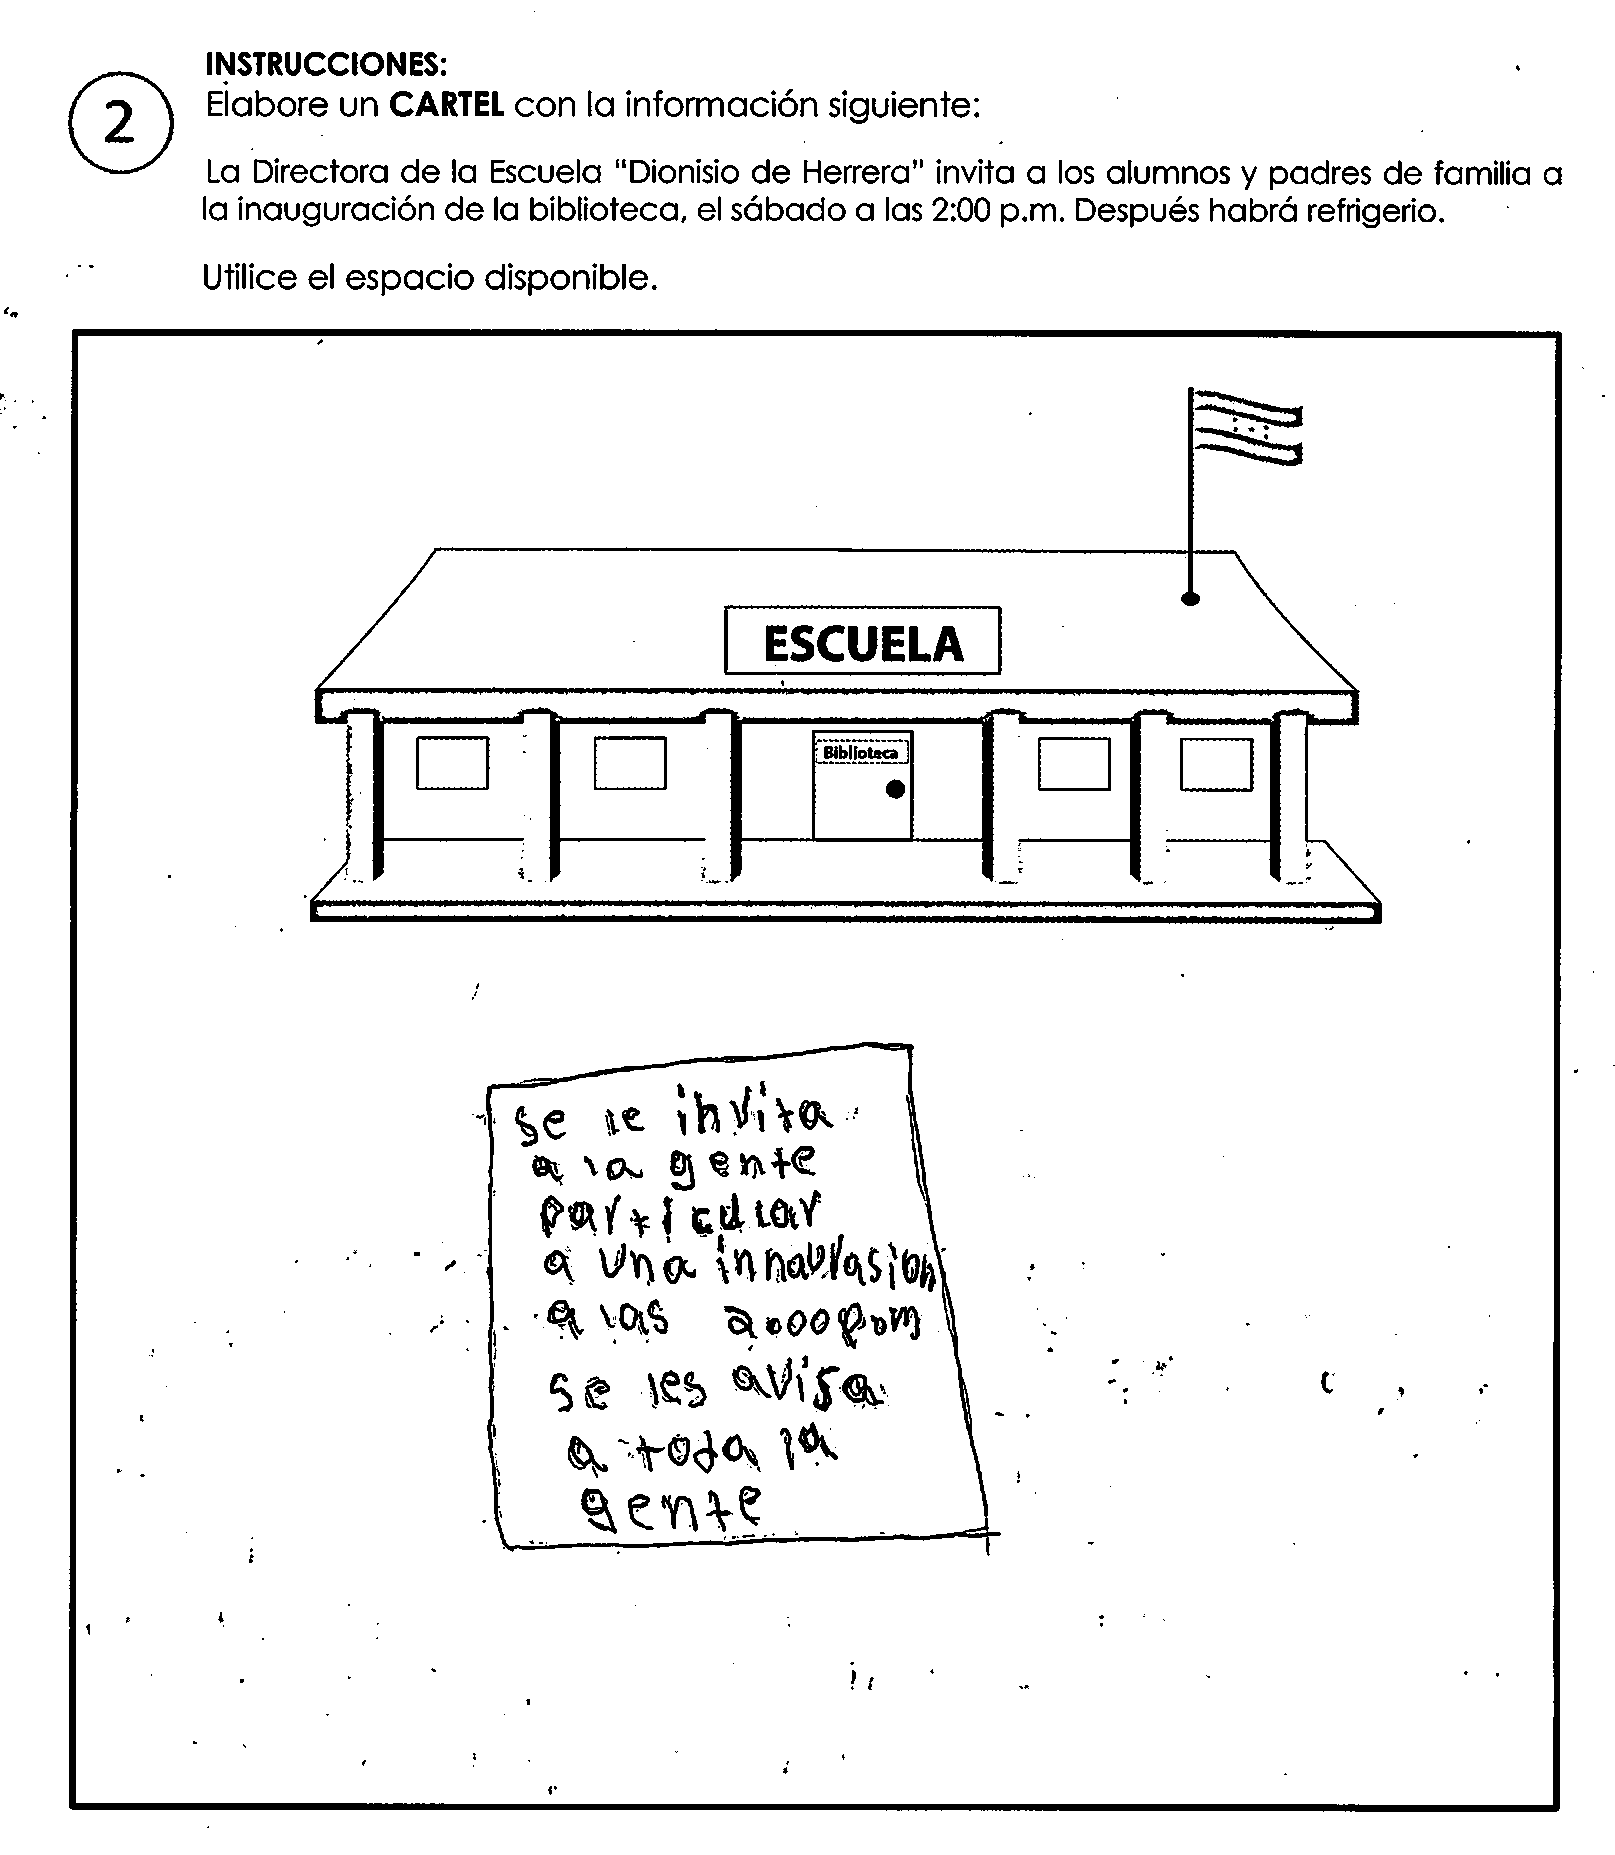 INSTRUCCIONES:
2
Elabore un CARTEL con la información siguiente:
La Directora de la Escuela "Dionisio de Herrera" invita a los alumnos y padres de familia a
la inauguración de la biblioteca, el sábado a las 2:00 p.m. Después habrá refrigerio.
Utilice el espacio disponible.
ESCUELA
Biblioteca
se le invita
a la gente
particular
a una innaurasion
a las 2:00 p.m
se les avisa
a toda la
gente